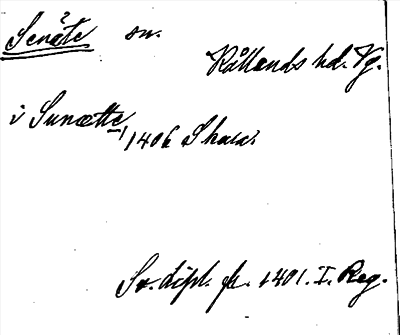 Senäte sn.
Kållands hd. Vg.
i Sunætte 1406 Skara
Sv. dipl. fr. 1401. I. Reg.